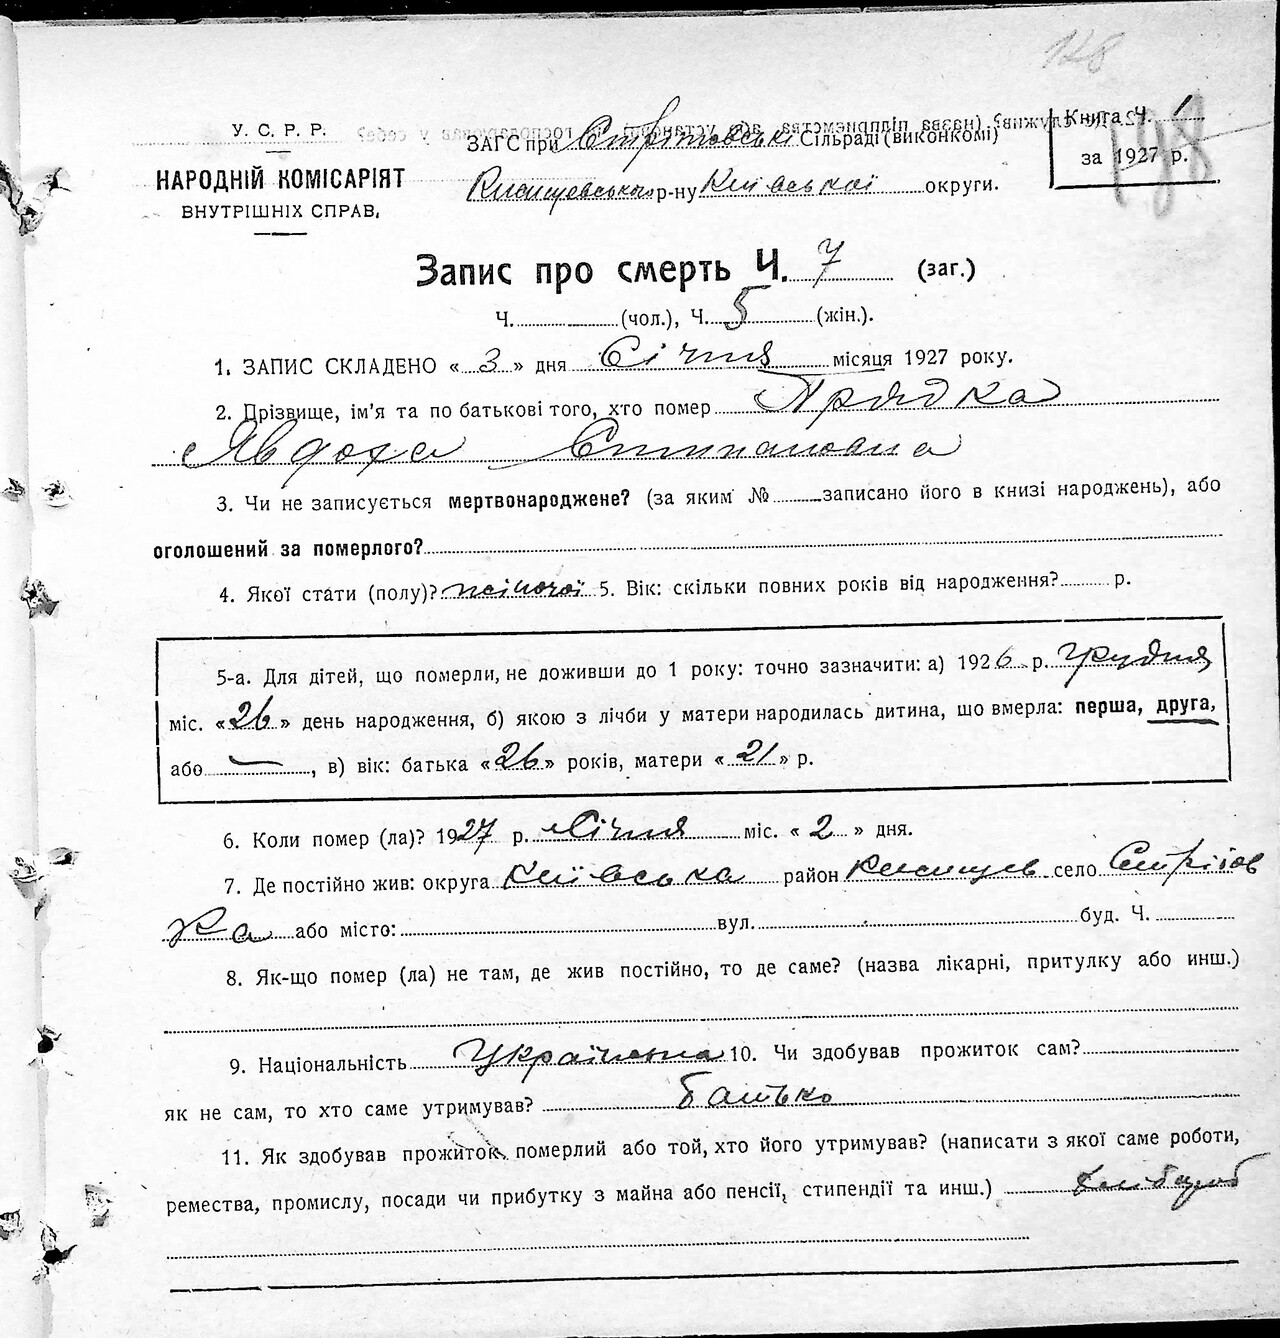 128
У. С. Р. Р.
НАРОДНІЙ КОМІСАРІЯТ
ВНУТРІШНІХ СПРАВ.
ЗАГС при Стрітовські Сільраді (виконкомі)
р-ну Київської округи.
Книга Ч. 1
за 1927 р.
198
Запис про смерть Ч. 7 (заг.)
Ч. (чол.), Ч. 5 (жін.).
1. ЗАПИС СКЛАДЕНО « 3 » дня Січня місяця 1927 року.
2. Прізвище, ім'я та по батькові того, хто помер Прядка
Явдоха Степановна
3. Чи не записується мертвонароджене? (за яким № записано його в книзі народжень), або
оголошений за померлого?
4. Якої стати (полу)? жіночої 5. Вік: скільки повних років від народження? р.
5-а. Для дітей, що померли, не доживши до 1 року: точно зазначити: а) 1926 р. Грудня
міс. «26» день народження, б) якою з лічби у матери народилась дитина, що вмерла: перша, друга,
або —, в) вік: батька «26» років, матери «21» р.
6. Коли помер (ла)? 1927 р. Січня міс. « 2 » дня.
7. Де постійно жив: округа Київська район село Стрітов
ка або місто: вул. буд. Ч.
8. Як-що помер (ла) не там, де жив постійно, то де саме? (назва лікарні, притулку або инш.)
9. Національність Українська 10. Чи здобував прожиток сам?
як не сам, то хто саме утримував? батько
11. Як здобував прожиток померлий або той, хто його утримував? (написати з якої саме роботи,
ремества, промислу, посади чи прибутку з майна або пенсії, стипендії та инш.) хлібороб